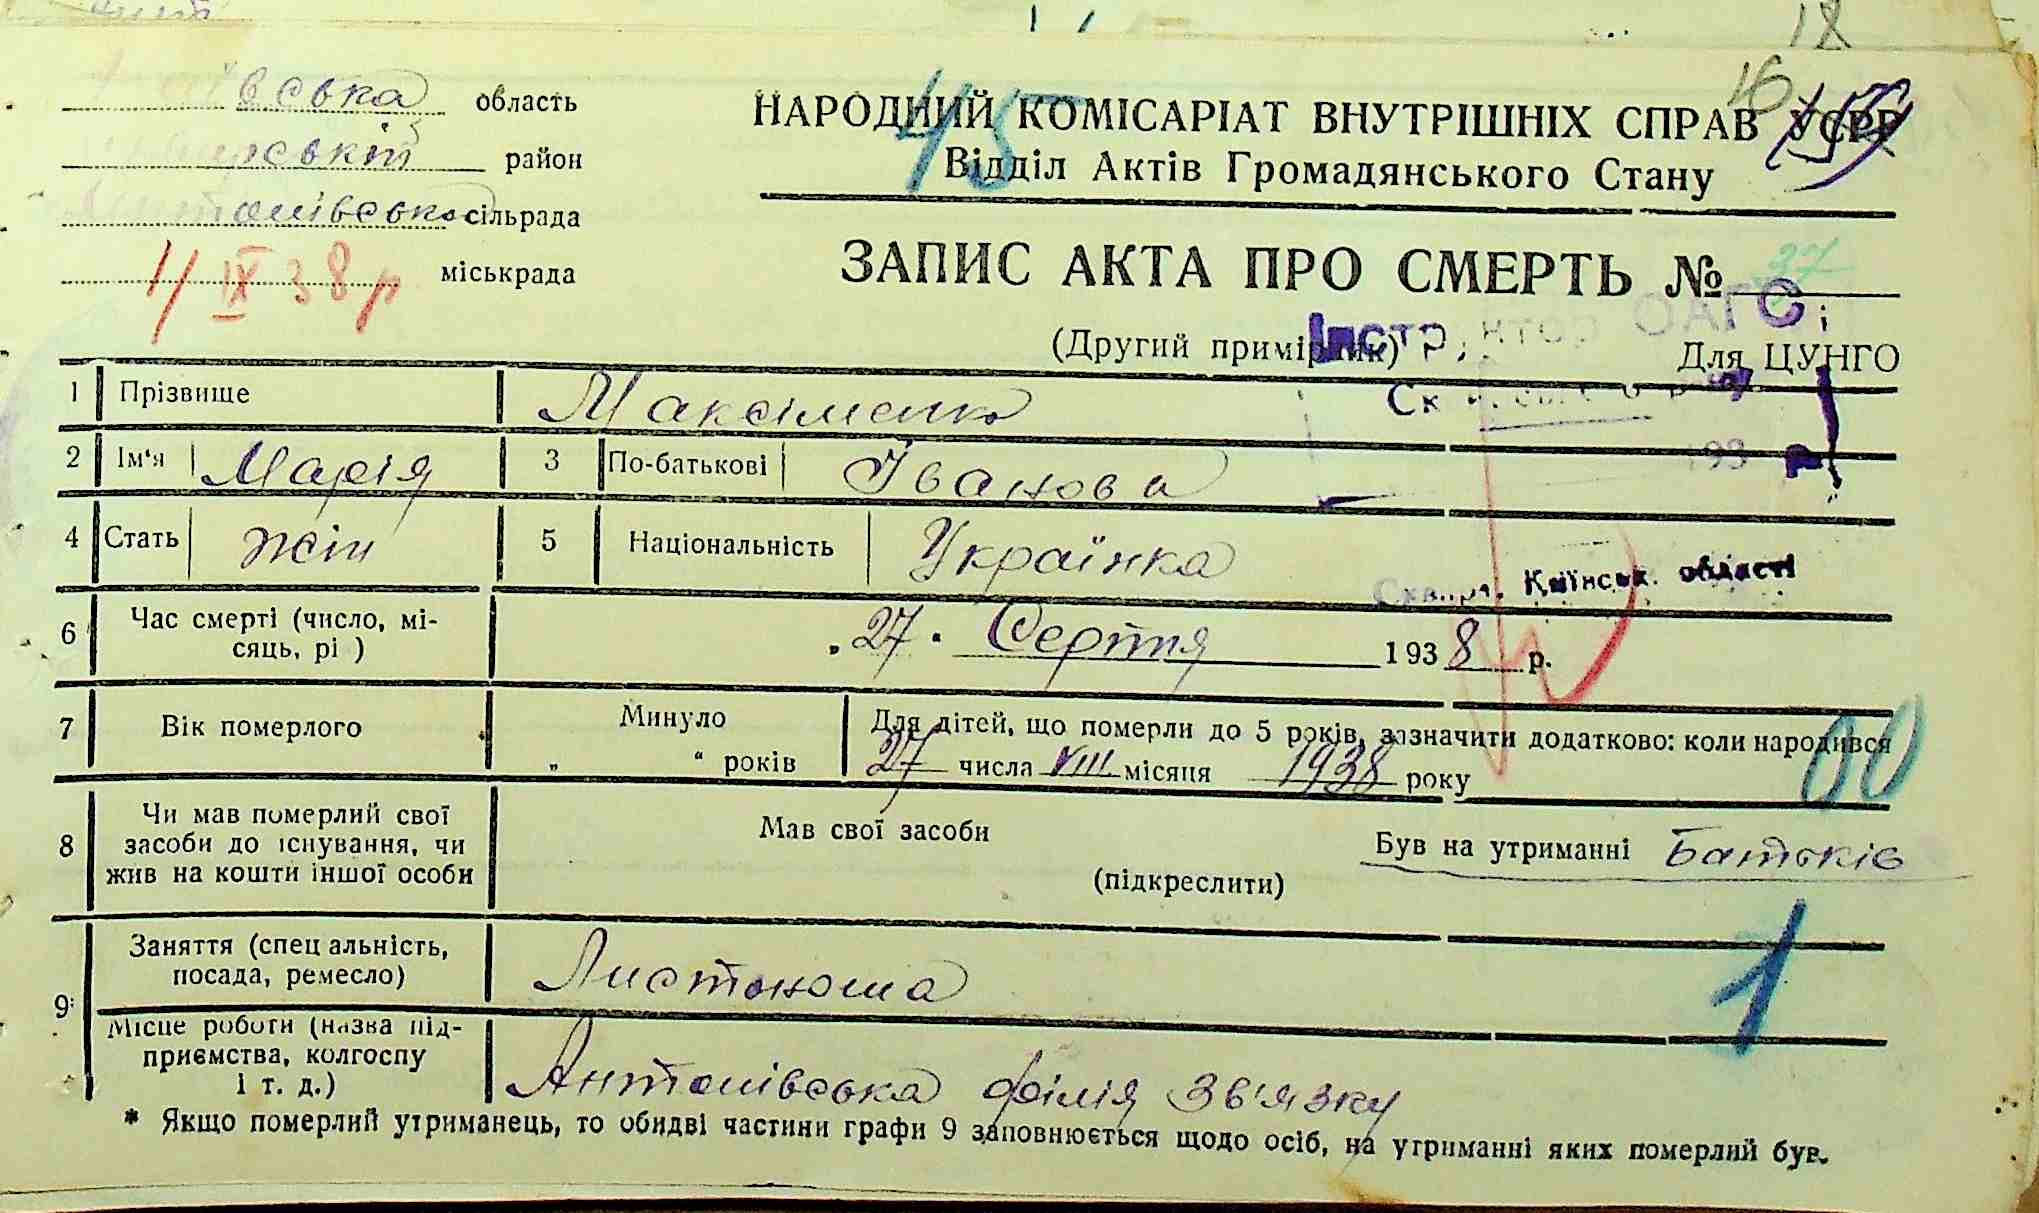 18
ївська область
НАРОДНИЙ КОМІСАРІАТ ВНУТРІШНІХ СПРАВ УСРР
45
16
159
Відділ Актів Громадянського Стану
район
Антонівська сільрада
11 IX 38 р міськрада
ЗАПИС АКТА ПРО СМЕРТЬ № 37
(Другий примірник)
Для ЦУНГО
ОАГС
1 Прізвище Максіменко
2 Ім'я Марія 3 По-батькові Іванова
193 р
4 Стать жін 5 Національність Українка
Сквира, Київськ. області
6 Час смерті (число, мі-
сяць, рі )
„ 27 " Серпня 1938 р.
7 Вік померлого
Минуло
„ " років
Для дітей, що померли до 5 років, зазначити додатково: коли народився
27 числа VIII місяця 1938 року
00
8 Чи мав померлий свої
засоби до існування, чи
жив на кошти іншої особи
Мав свої засоби
(підкреслити)
Був на утриманні Батьків
9 Заняття (спец альність,
посада, ремесло)
Листоноша
1
Місце роботи (назва під-
приємства, колгоспу
і т. д.)
Антонівська філія зв'язку
* Якщо померлий утриманець, то обидві частини графи 9 заповнюється щодо осіб, на утриманні яких померлий був.